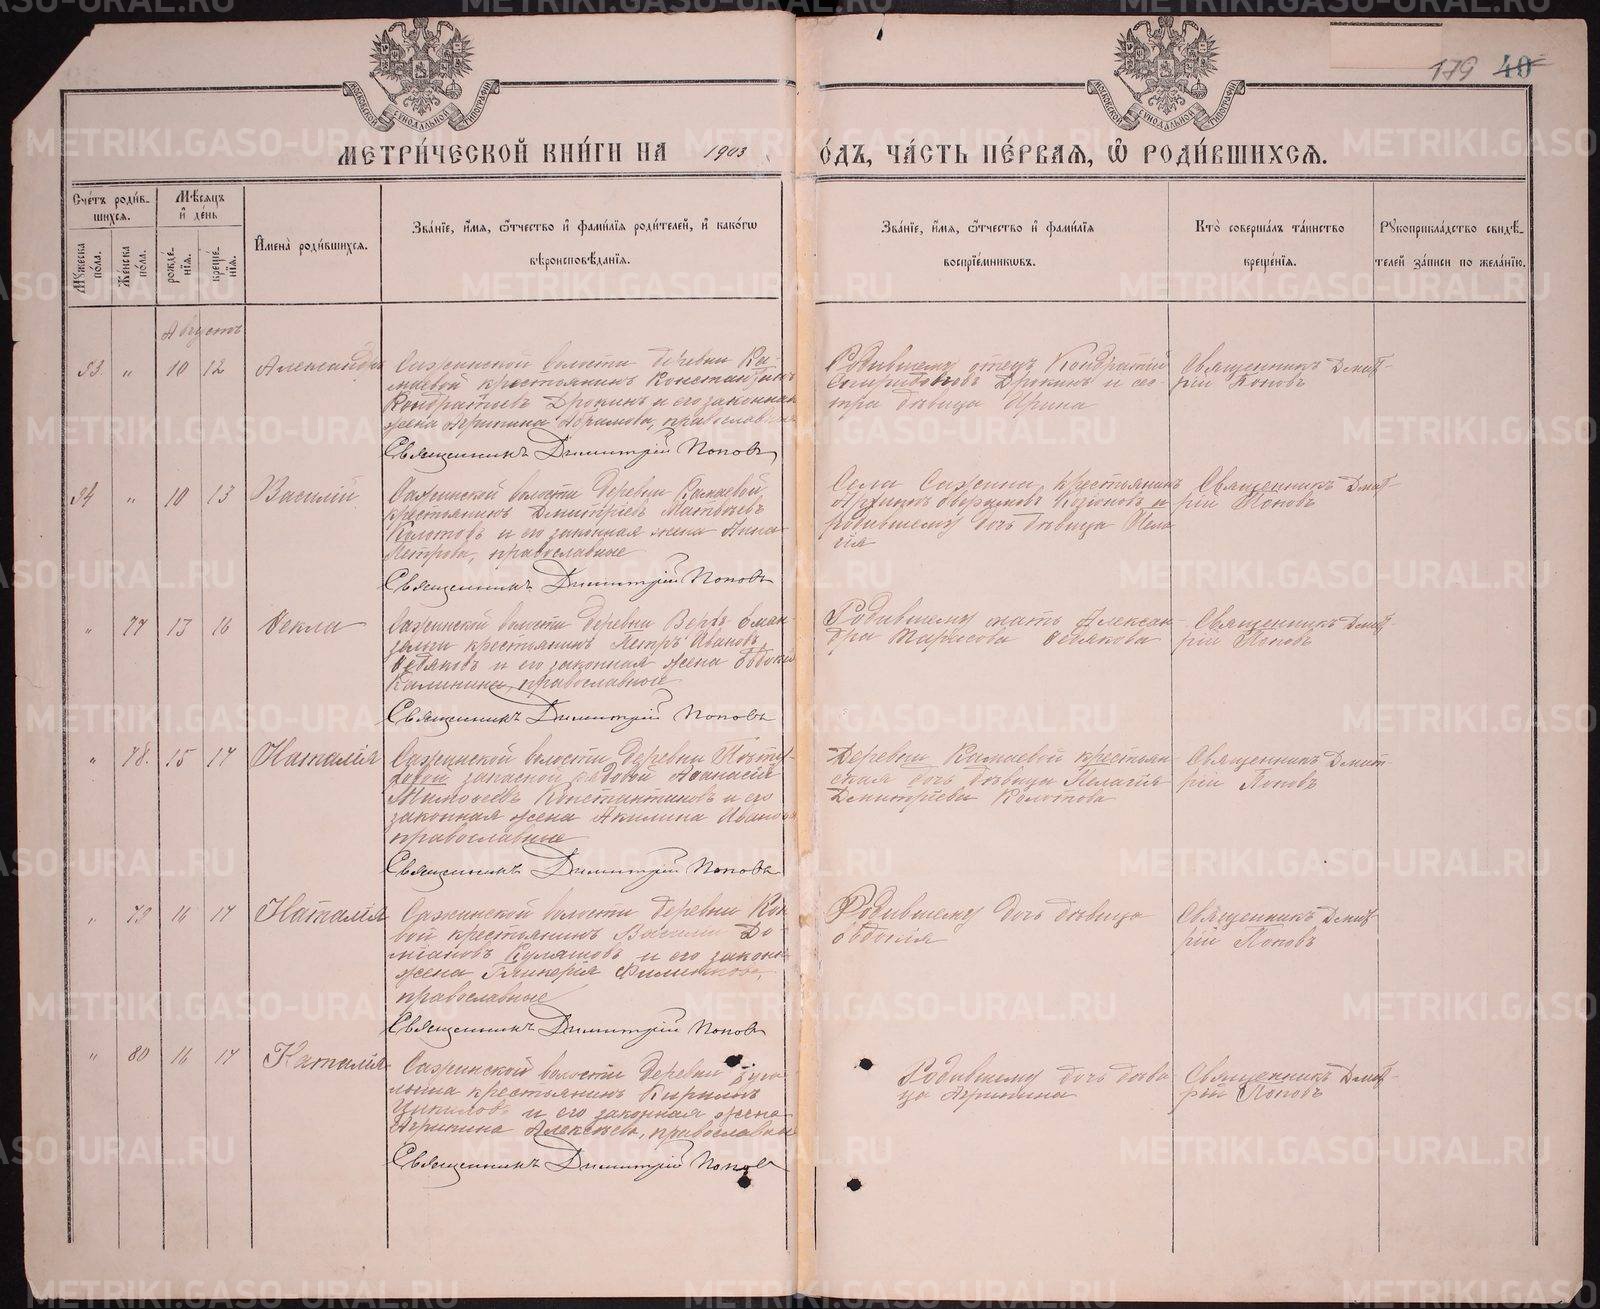 179 40
МОСКОВСКОЙ СѴНОДАЛЬНОЙ ТИПОГРАФІИ
МОСКОВСКОЙ СѴНОДАЛЬНОЙ ТИПОГРАФІИ
МЕТРИ́ЧЕСКОЙ КНИ́ГИ НА 1903
О́ДЪ, ЧА́СТЬ ПЕ́РВАѦ, Ѡ҆ РОДИ́ВШИХСѦ.
Сче́тъ роди́в-
шихся.
Мѣ́сяцъ
и҆ де́нь
Мꙋ́жеска по́ла.
Же́нска по́ла.
рожде́-
нїя.
креще́-
нїя.
И҆мена̀ роди́вшихся.
Зва́нїе, и҆́мя, ѻ҆́тчество и҆ фами́лїя роди́телей, и҆ како́гѡ
вѣроисповѣ́данїя.
Зва́нїе, и҆́мя, ѻ҆́тчество и҆ фами́лїя
воспрїе́мникѡвъ.
Кто̀ соверша́лъ та́инство
креще́нїя.
Рꙋкоприкла́дство свидѣ́-
телей за́писи по жела́нїю.
Августъ
93. " 10 12 Александръ
Сажинской волости деревни Ка-
маевой крестьянинъ Константинъ
Кондратіевъ Дрокинъ и его законная
жена Агрипина Абрамова, православные
Священникъ Димитрій Поповъ
Родившему отецъ Кондратій
Спиридоновъ Дрокинъ и сес-
тра дѣвица Ирина
Священникъ Димит-
рій Поповъ
94 " 10 13 Василій
Сажинской волости деревни Камаевой
крестьянинъ Димитрій Матвѣевъ
Колотовъ и его законная жена Анна
Петрова, православные
Священникъ Димитрій Поповъ
Села Сажина крестьянинъ
и
родившему дочь дѣвица Пела-
гія
Священникъ Димит-
рій Поповъ
" 77 13 16 Ѳекла
Сажинской волости деревни Верхъ
крестьянинъ Петръ Ивановъ
и его законная жена Евдокія
Калинина, православные
Священникъ Димитрій Поповъ
Родившему мать Алексан-
дра
Священникъ Димит-
рій Поповъ
" 78. 15 17 Наталія
Сажинской волости деревни
запасной рядовой Аѳанасій
Тимоѳеевъ Константиновъ и его
законная жена Акилина Иванова
православные
Священникъ Димитрій Поповъ
Деревни Камаевой крестьян-
ская дочь дѣвица Пелагія
Димитріева Колотова
Священникъ Димит-
рій Поповъ
" 79 16 17 Наталія
Сажинской волости деревни
крестьянинъ Василій
и его законная
жена Гликерія Филиппова,
православные
Священникъ Димитрій Поповъ
Родившему дочь дѣвица
Евдокія
Священникъ Димит-
рій Поповъ
" 80 16 17 Наталія
Сажинской волости деревни
крестьянинъ Кирилъ
и его законная жена
Агрипина Алексѣева, православные
Священникъ Димитрій Поповъ
Родившему дочь дѣви-
ца Агрипина
Священникъ Димит-
рій Поповъ
METRIKI.GASO-URAL.RU